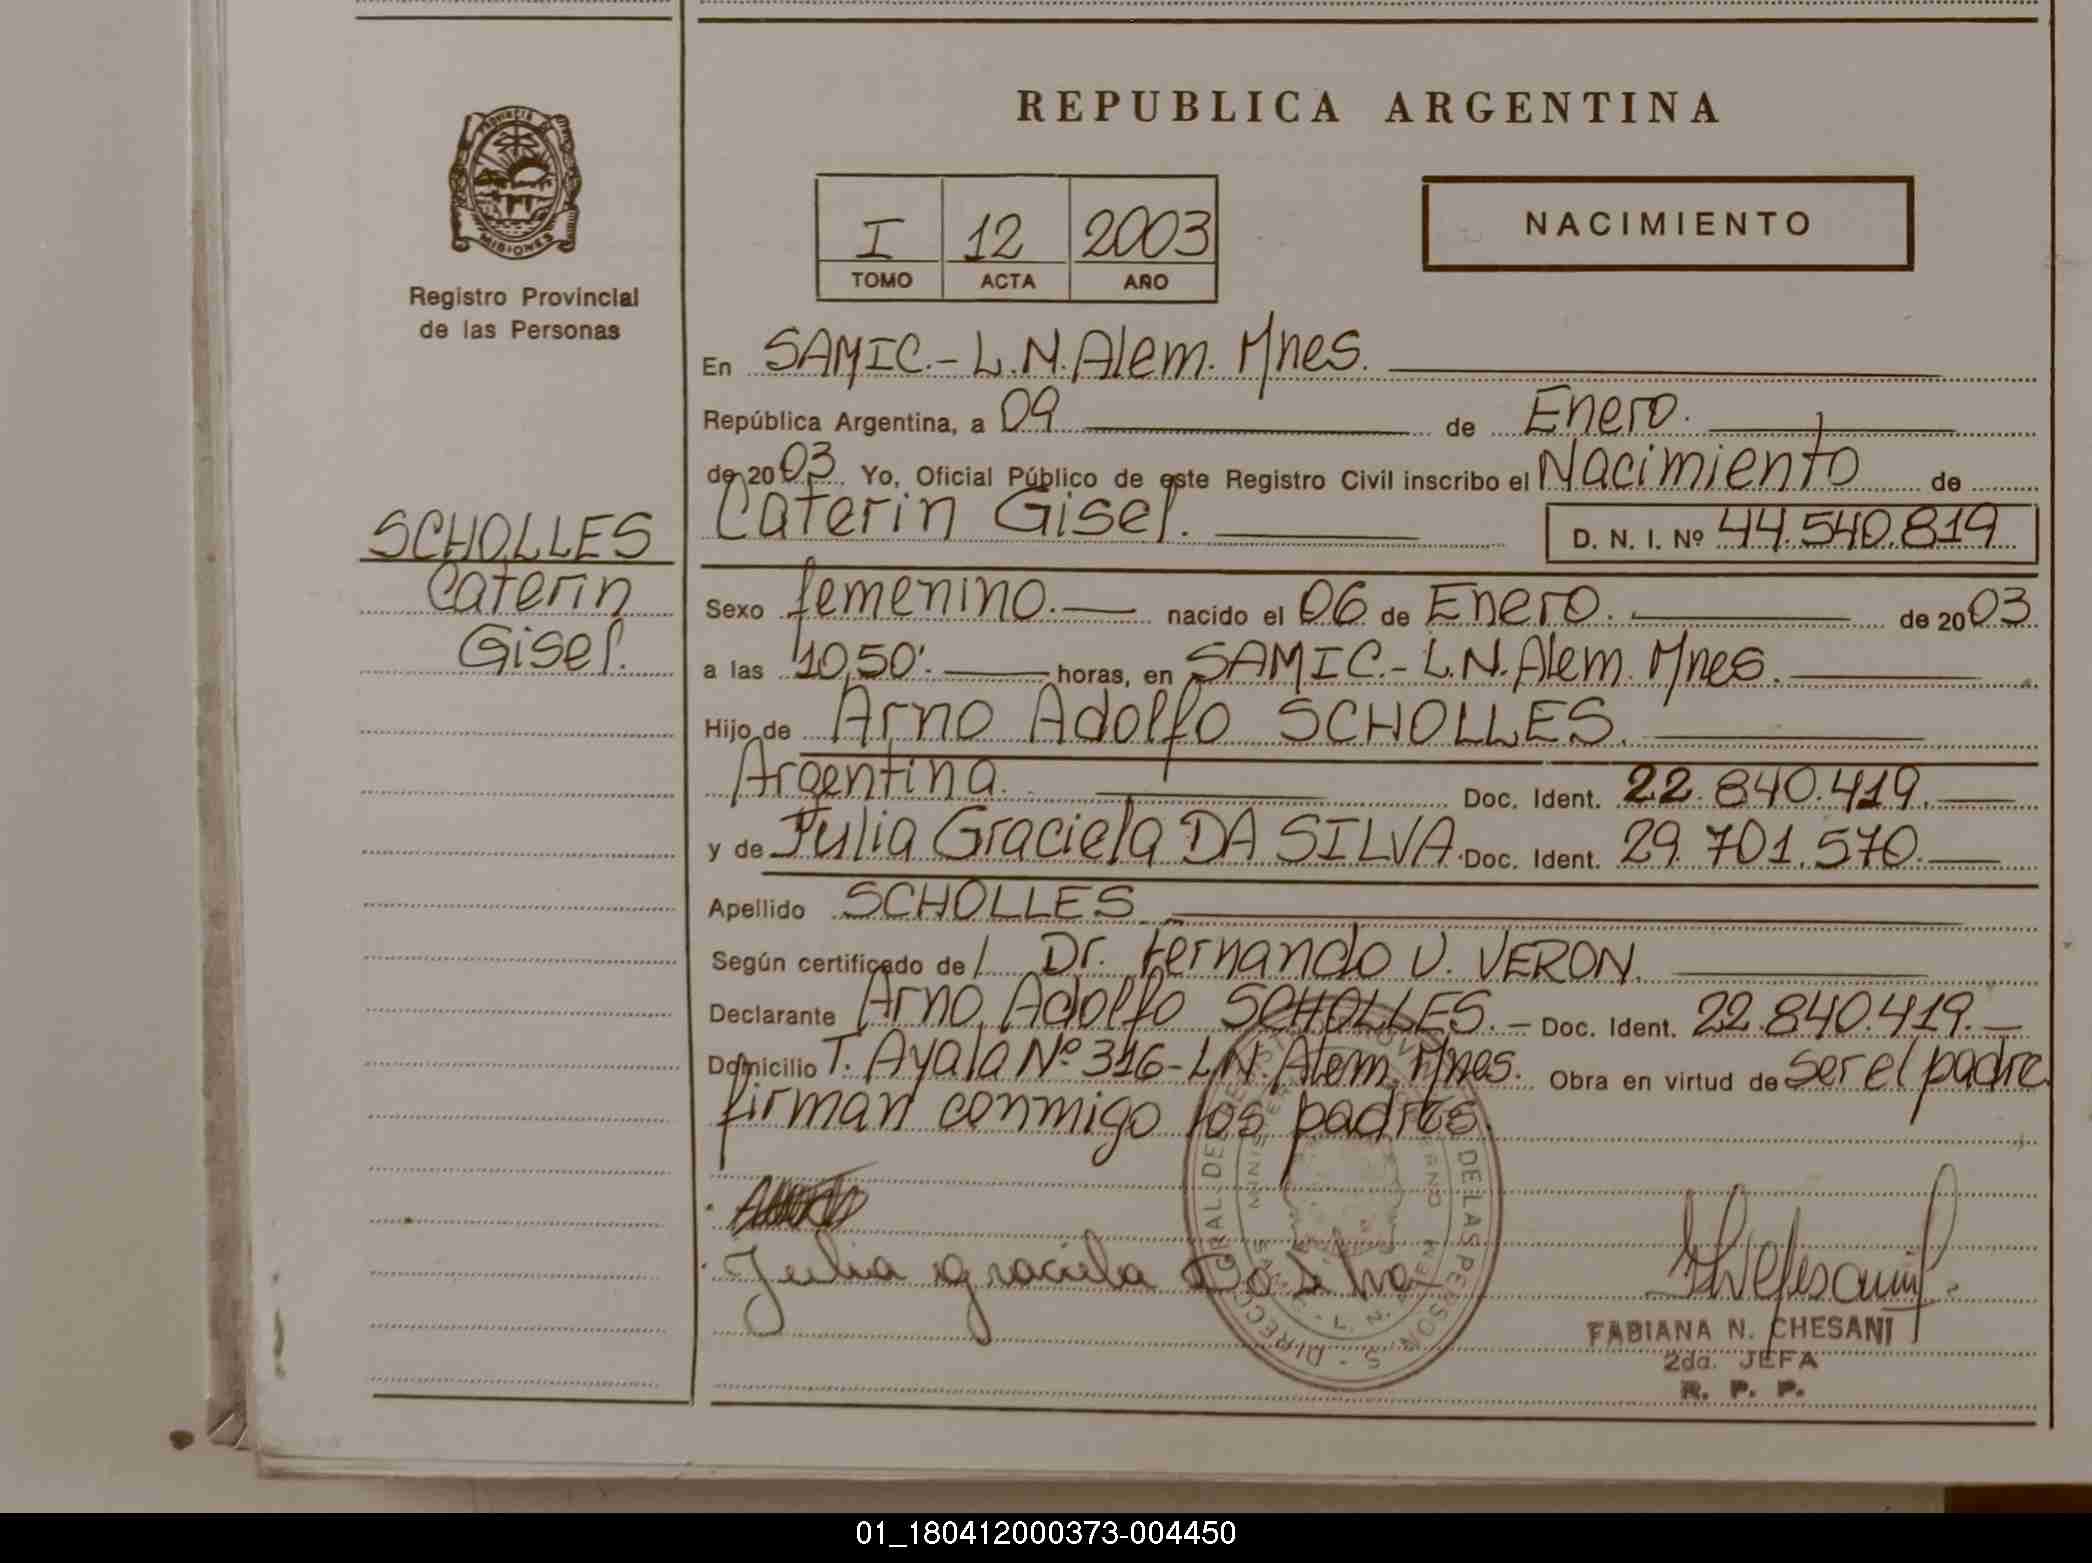 REPUBLICA ARGENTINA
PROVINCIA DE
MISIONES
Registro Provincial
de las Personas
I 12 2003
TOMO ACTA AÑO
NACIMIENTO
En SAMIC.- L.N.Alem. Mnes.
República Argentina, a 09 de Enero.
de 2003. Yo, Oficial Público de este Registro Civil inscribo el Nacimiento de
SCHOLLES
Caterin
Gisel.
Caterin Gisel. D. N. I. Nº 44.540.819
Sexo femenino. nacido el 06 de Enero. de 2003
a las 10,50'. horas, en SAMIC.- L.N.Alem. Mnes.
Hijo de Arno Adolfo SCHOLLES.
Argentina. Doc. Ident. 22.840.419.
y de Julia Graciela DA SILVA. Doc. Ident. 29.701.570.
Apellido SCHOLLES
Según certificado de / Dr. Fernando U. VERON.
Declarante Arno Adolfo SCHOLLES. Doc. Ident. 22.840.419.
Domicilio T. Ayala Nº 316-L.N. Alem. Mnes. Obra en virtud de ser el padre
firman conmigo los padres.
Julia graciela Da Silva
FABIANA N. CHESANI
2da. JEFA
R. P. P.
01_180412000373-004450